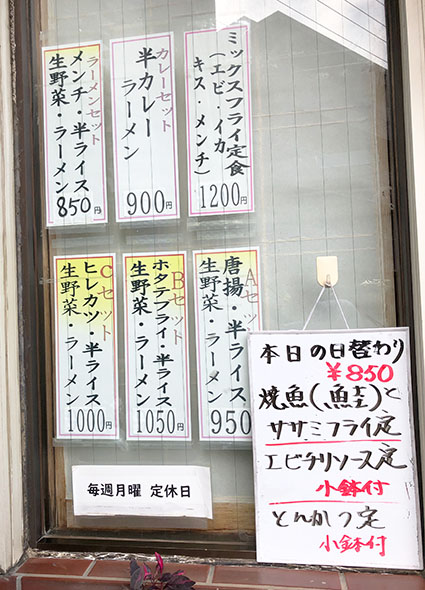 ミックスフライ定食
(エビ・イカ
キス・メンチ)
1200円
カレーセット
半カレー
ラーメン
900円
ラーメンセット
メンチ・半ライス
生野菜・ラーメン
850円
Aセット
唐揚・半ライス
生野菜・ラーメン
950
Bセット
ホタテフライ・半ライス
生野菜・ラーメン
1050円
Cセット
ヒレカツ・半ライス
生野菜・ラーメン
1000円
毎週月曜 定休日
本日の日替わり
¥850
焼魚(鮭)と
ササミフライ定
エビチリソース定
小鉢付
とんかつ定
小鉢付